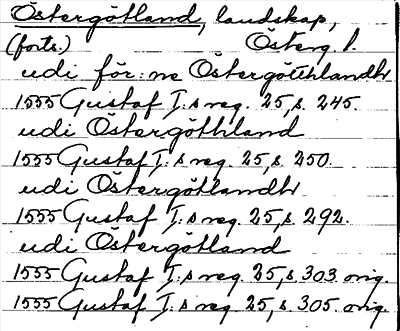 Östergötland, landskap,
(forts.) Österg. l.
udi för:ne Östergötthlandh
1555 Gustaf I:s reg. 25, s. 245.
udi Östergöthland
1555 Gustaf I:s reg. 25, s. 250.
udi Östergötlandh
1555 Gustaf I:s reg. 25, s. 292.
udi Östergötland
1555 Gustaf I:s reg. 25, s. 303 orig.
1555 Gustaf I:s reg. 25, s. 305 orig.